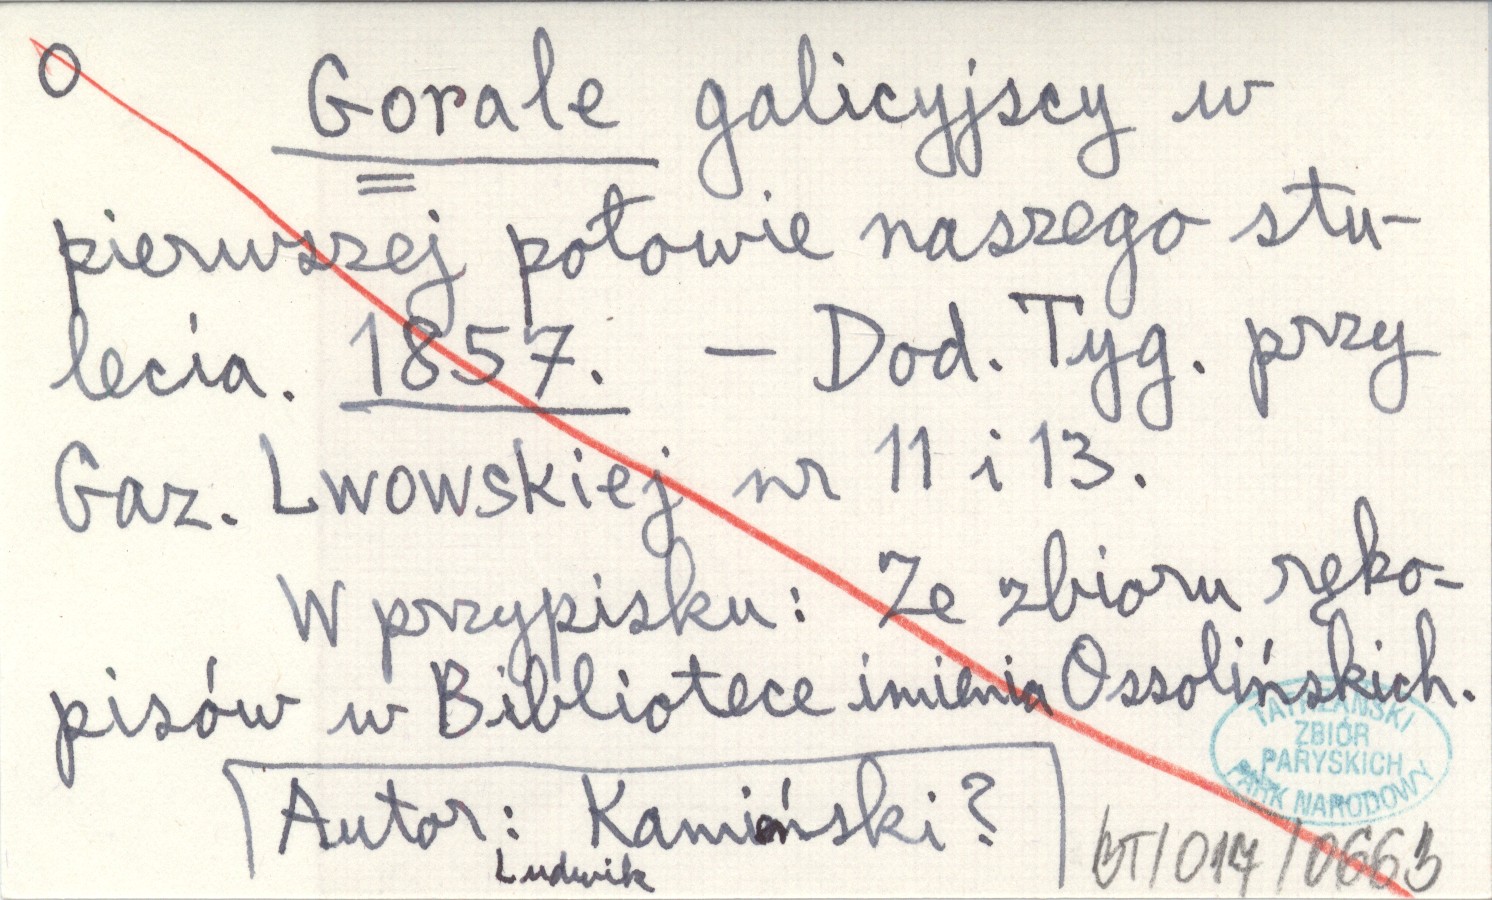 O Gorale galicyjscy w
pierwszej połowie naszego stu-
lecia. 1857. — Dod. Tyg. przy
Gaz. Lwowskiej nr 11 i 13.
W przypisku: Ze zbioru ręko-
pisów w Bibliotece imienia Ossolińskich.
TATRZAŃSKI
ZBIÓR
PARYSKICH
PARK NARODOWY
Autor: Kamiński?
Ludwik
BT/017/0663